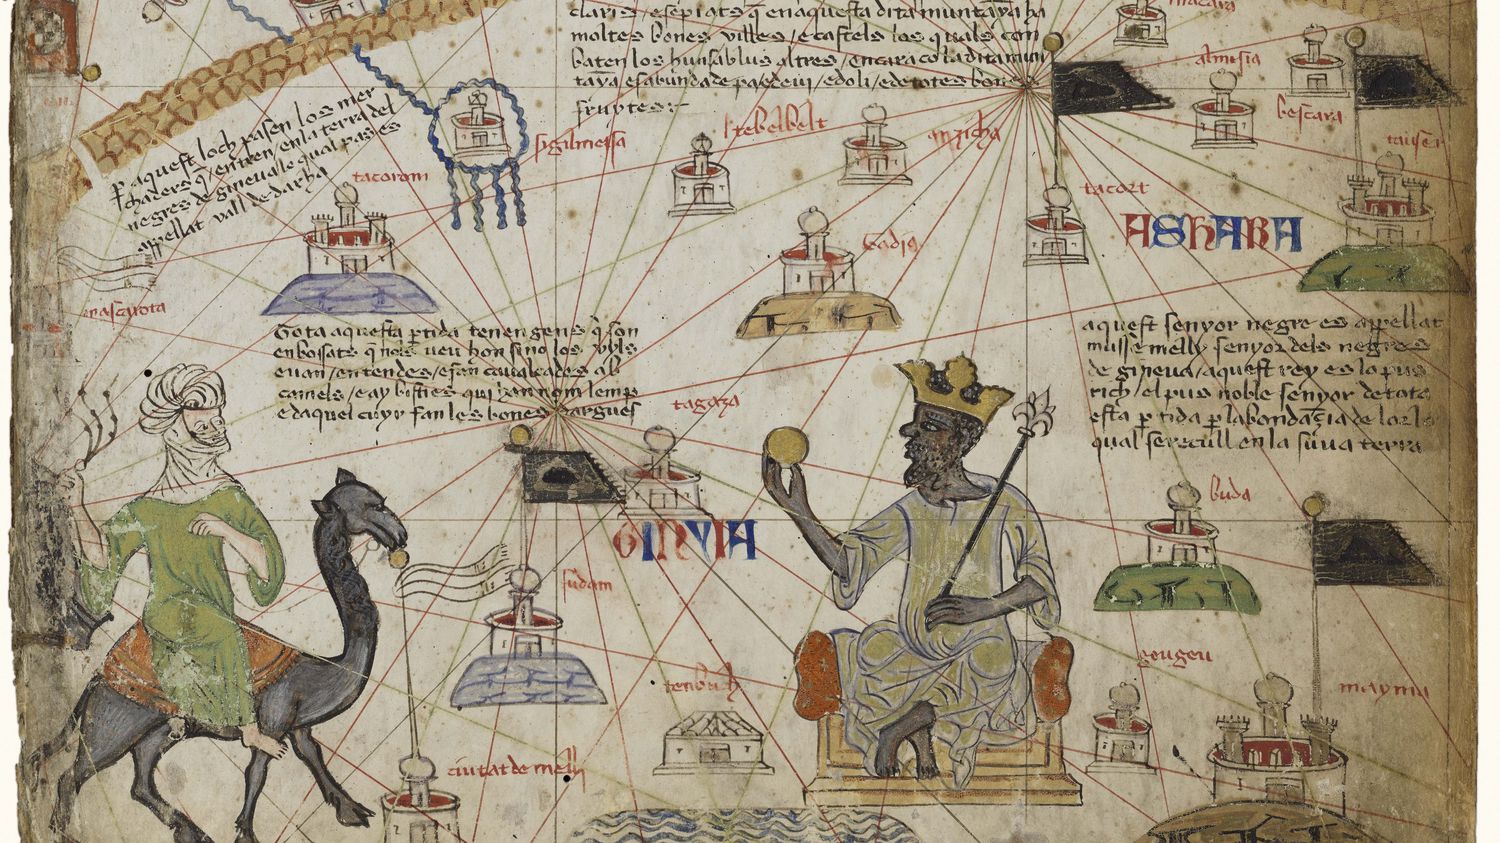 claris / e sepiats q̃ en aquesta dita muntaya ha
moltes bones villes / e castels los quals con
baten los huns ab lus altres / encara co la dita mun
taya es abunda de pa e de vi / e d oli / e de totes bones
fruytes :-
macara
almisia
bescara
tauser
ꝑ aquest loch pasen los mer
chaders q̃ entren en la terra del
negres de gineva le qual pas es
appellat vall de darha
tacorom
sigilmessa
tebelbelt
anzicha
tacort
ASHARA
mascarota
Tota aquesta ꝑtida tenen gens q̃ son
enbossats q̃ nols veu hom sino los uyls
e van / en tendes / e fan cavalcades ab
camels / e ay bisties qui han nom lemp
e daquel cuyr fan les bones dargues
aquest senyor negre es appellat
musse melly senyor dels negres
de gineva / aquest rey es lo pus
rich / el pus noble senyor de tota
esta ꝑtida ꝑ labondançia de lor lo
qual se recull en la suua terra
tagaza
GINYIA
buda
sudam
tenbuch
geugeu
mayma
ciutat de melli